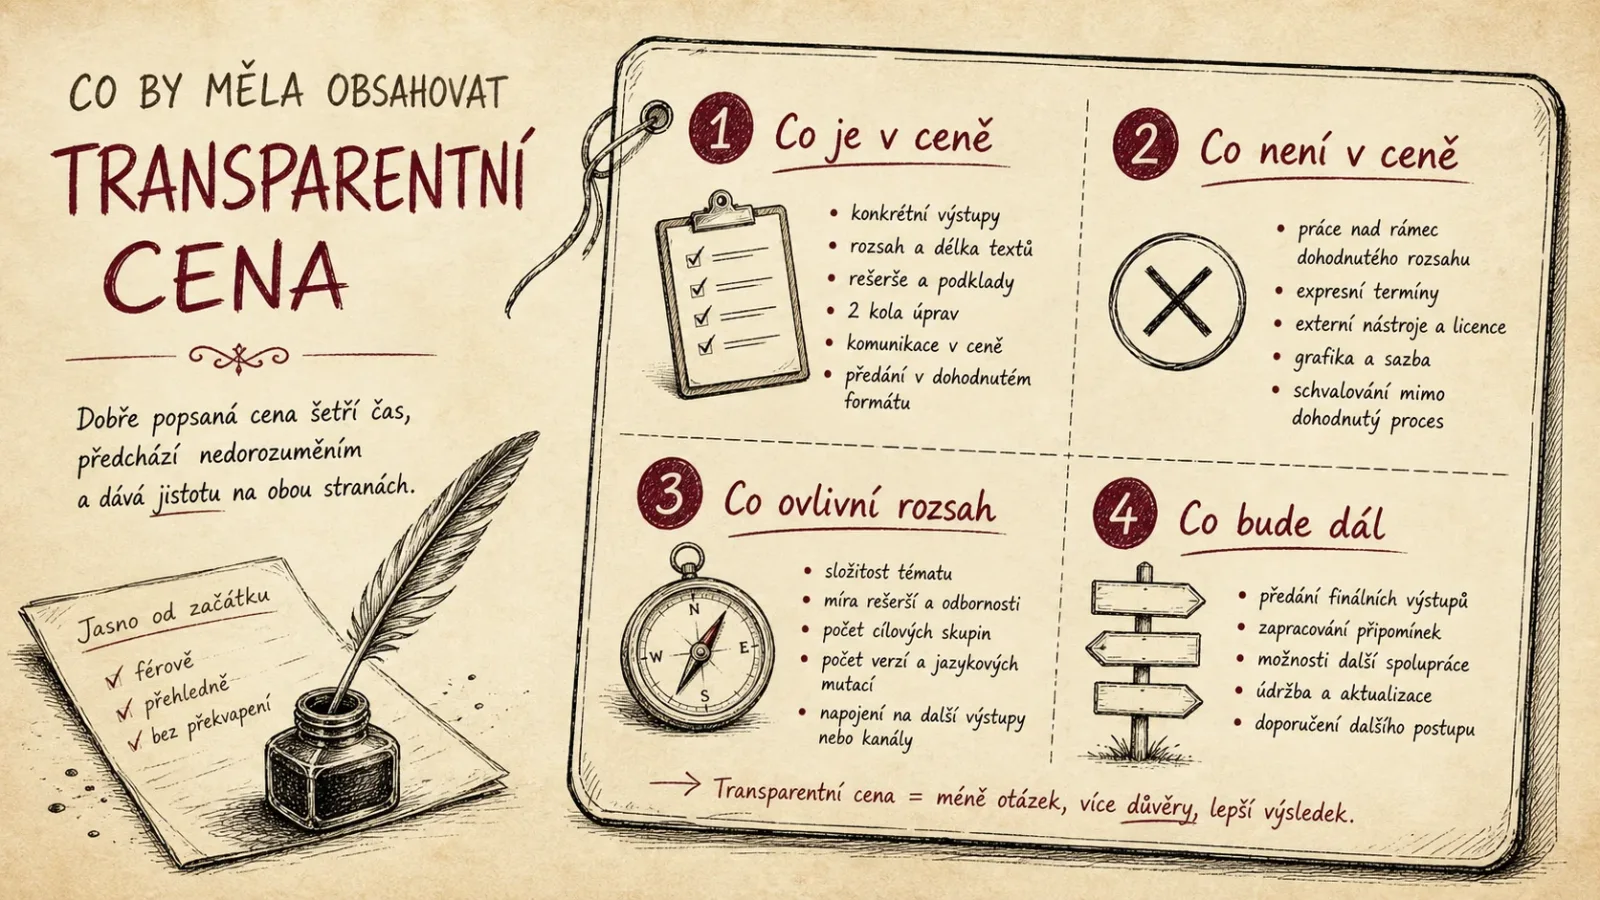 CO BY MĚLA OBSAHOVAT
TRANSPARENTNÍ
CENA
Dobře popsaná cena šetří čas,
předchází nedorozuměním
a dává jistotu na obou stranách.
Jasno od začátku
férově
přehledně
bez překvapení
1 Co je v ceně
• konkrétní výstupy
• rozsah a délka textů
• rešerše a podklady
• 2 kola úprav
• komunikace v ceně
• předání v dohodnutém
formátu
2 Co není v ceně
• práce nad rámec
dohodnutého rozsahu
• expresní termíny
• externí nástroje a licence
• grafika a sazba
• schvalování mimo
dohodnutý proces
3 Co ovlivní rozsah
N
E
S
W
• složitost tématu
• míra rešerší a odbornosti
• počet cílových skupin
• počet verzí a jazykových
mutací
• napojení na další výstupy
nebo kanály
4 Co bude dál
• předání finálních výstupů
• zapracování připomínek
• možnosti další spolupráce
• údržba a aktualizace
• doporučení dalšího postupu
→ Transparentní cena = méně otázek, více důvěry, lepší výsledek.